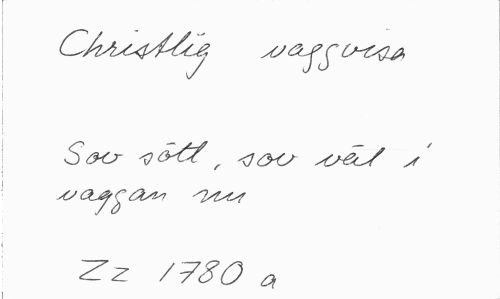 Christlig vaggvisa
Sov sött, sov väl i
vaggan nu
Zz 1780 a